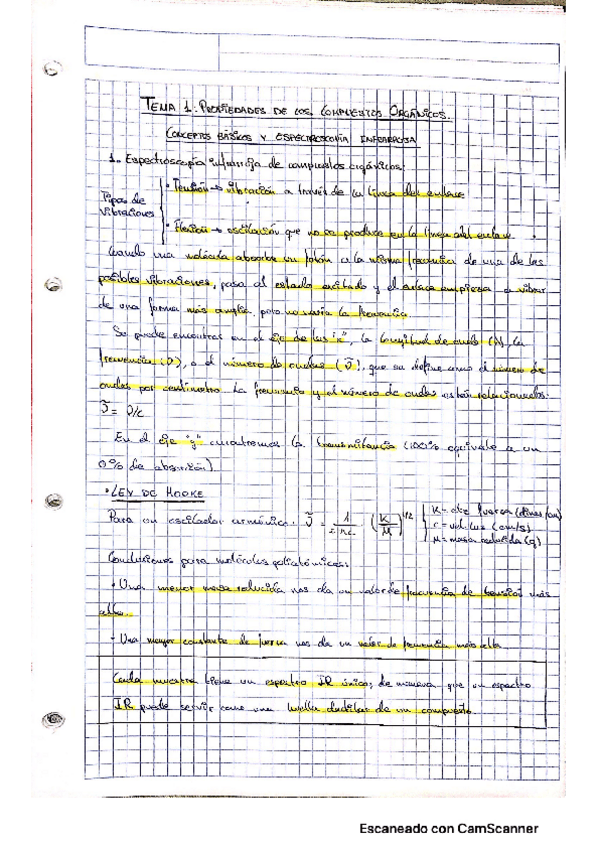 TEMA 1. PROPIEDADES DE LOS COMPUESTOS ORGÁNICOS.
CONCEPTOS BÁSICOS Y ESPECTROSCOPÍA INFRARROJA
1. Espectroscopía infrarroja de compuestos orgánicos:
Tipos de vibraciones
· Tensión → vibración a través de la línea del enlace
· Flexión → oscilación que no se produce en la línea del enlace.
Cuando una molécula absorbe un fotón a la misma frecuencia de una de las
posibles vibraciones, pasa al estado excitado y el enlace empieza a vibrar
de una forma más amplia, pero no varía la frecuencia.
Se puede encontrar en el eje de las "x", la longitud de onda (λ), la
frecuencia (ν), o el número de ondas (ν̃), que se define como el número de
ondas por centímetro. La frecuencia y el número de ondas están relacionados:
ν̃ = ν/c
En el eje "y" encontremos la transmitancia (100% equivale a un
0% de absorción).
· LEY DE HOOKE
Para un oscilador armónico: ν̃ = 1/2πc (K/μ)^1/2
K = cte fuerza (dinas/cm)
c = vel. luz (cm/s)
μ = masa reducida (g)
Conclusiones para moléculas poliatómicas:
· Una menor masa reducida nos da un valor de frecuencia de tensión más
alto.
- Una mayor constante de fuerza nos da un valor de frecuencia más alto
Cada muestra tiene un espectro IR único, de manera que un espectro
IR puede servir como una huella dactilar de un compuesto.
Escaneado con CamScanner